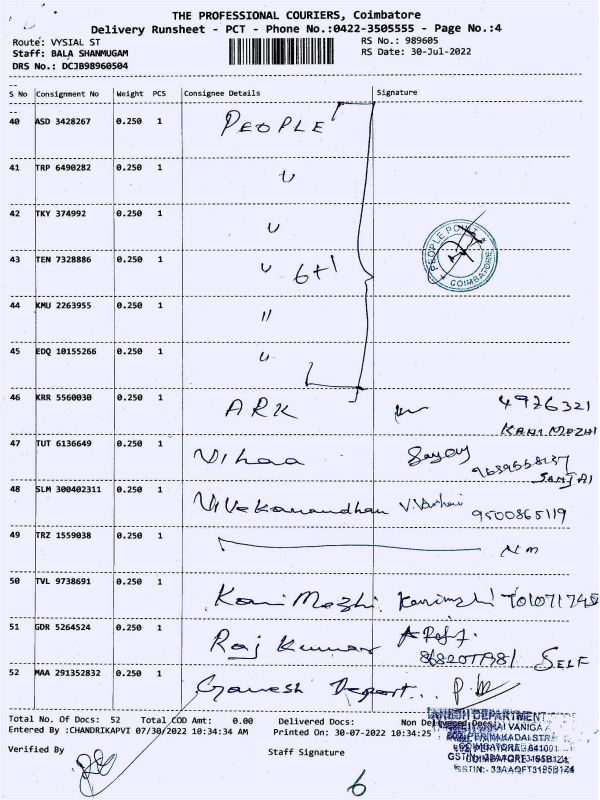 THE PROFESSIONAL COURIERS, Coimbatore
Delivery Runsheet - PCT - Phone No.:0422-3505555 - Page No.:4
Route: VYSIAL ST RS No.: 989605
Staff: BALA SHANMUGAM RS Date: 30-Jul-2022
DRS No.: DCJB98960504
S No Consignment No Weight PCS Consignee Details Signature
40 ASD 3428267 0.250 1 PEOPLE
41 TRP 6490282 0.250 1 "
42 TKY 374992 0.250 1 "
PEOPLE POINT COIMBATORE
43 TEN 7328886 0.250 1 " 6+1
44 KMU 2263955 0.250 1 "
45 EDQ 10155266 0.250 1 "
46 KRR 5560030 0.250 1 ARK 4976321
KANIMOZHI
47 TUT 6136649 0.250 1 Vihaa
SANJAI
48 SLM 300402311 0.250 1 Vivekanandhan 9500865119
49 TRZ 1559038 0.250 1
50 TVL 9738691 0.250 1 Kani Mozhi
51 GDR 5264524 0.250 1 Raj Kumar SELF
52 MAA 291352832 0.250 1 Ganesh Depart..
Total No. Of Docs: 52 Total COD Amt: 0.00 Delivered Docs: Non Delivered Docs:
Entered By :CHANDRIKAPVI 07/30/2022 10:34:34 AM Printed On: 30-07-2022 10:34:25
Verified By Staff Signature
6